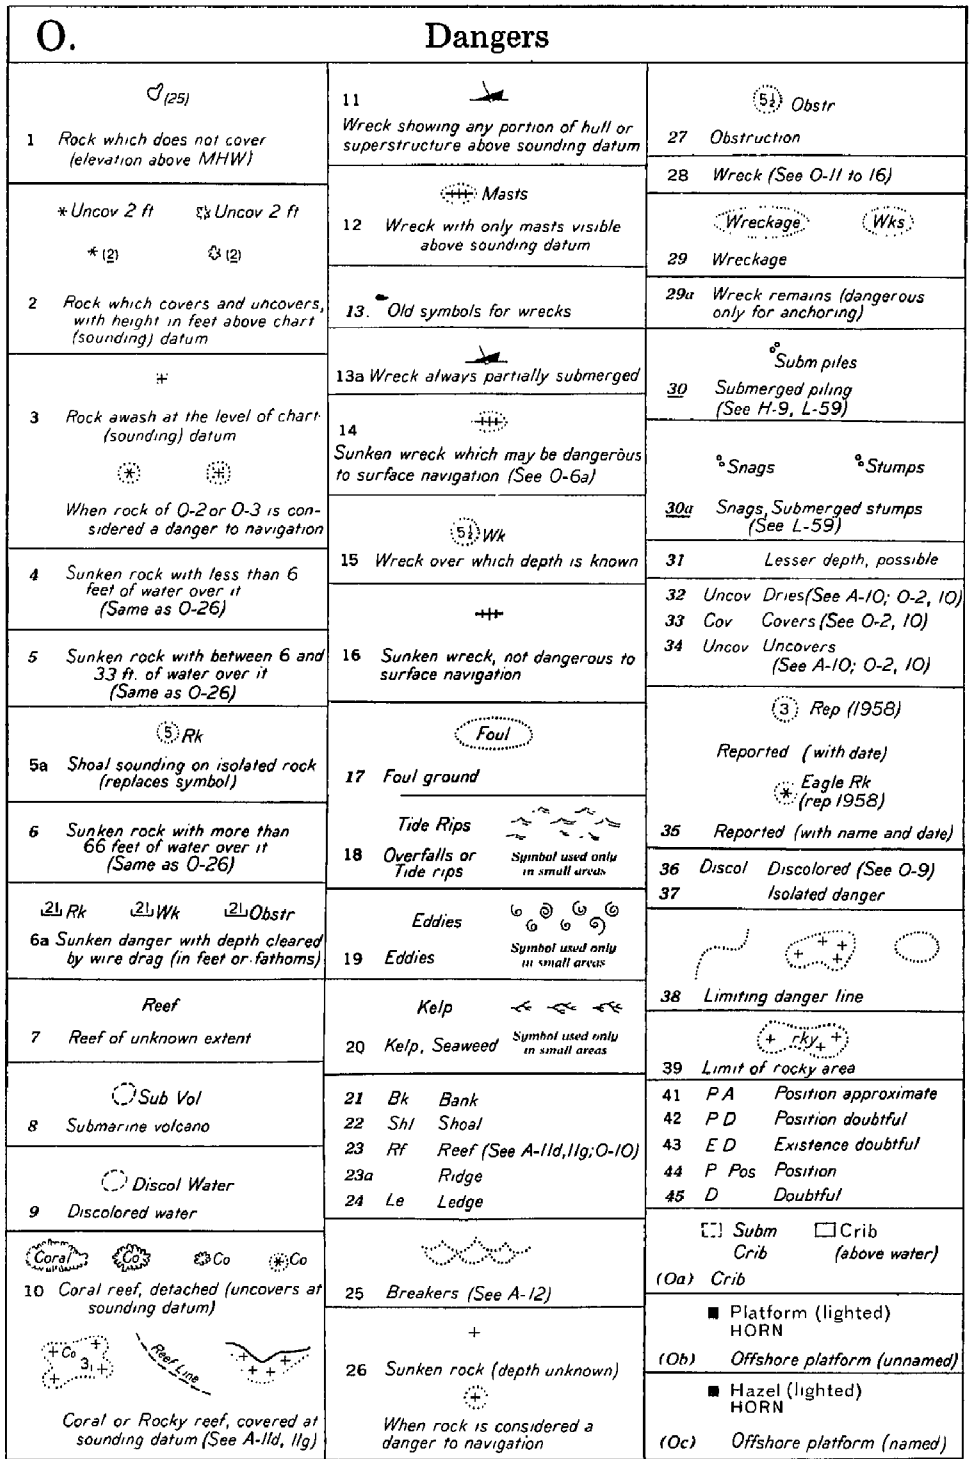 O.
Dangers
(25)
1 Rock which does not cover
(elevation above MHW)
* Uncov 2 ft Uncov 2 ft
* (2) (2)
2 Rock which covers and uncovers,
with height in feet above chart
(sounding) datum
3 Rock awash at the level of chart
(sounding) datum
When rock of O-2 or O-3 is con-
sidered a danger to navigation
4 Sunken rock with less than 6
feet of water over it
(Same as O-26)
5 Sunken rock with between 6 and
33 ft. of water over it
(Same as O-26)
5 Rk
5a Shoal sounding on isolated rock
(replaces symbol)
6 Sunken rock with more than
66 feet of water over it
(Same as O-26)
21 Rk 21 Wk 21 Obstr
6a Sunken danger with depth cleared
by wire drag (in feet or fathoms)
Reef
7 Reef of unknown extent
Sub Vol
8 Submarine volcano
Discol Water
9 Discolored water
Coral Co Co Co
10 Coral reef, detached (uncovers at
sounding datum)
Co 3 Reef Line
Coral or Rocky reef, covered at
sounding datum (See A-11d, 11g)
11
Wreck showing any portion of hull or
superstructure above sounding datum
Masts
12 Wreck with only masts visible
above sounding datum
13. Old symbols for wrecks
13a Wreck always partially submerged
14
Sunken wreck which may be dangerous
to surface navigation (See O-6a)
5½ Wk
15 Wreck over which depth is known
16 Sunken wreck, not dangerous to
surface navigation
Foul
17 Foul ground
Tide Rips
18 Overfalls or Symbol used only
Tide rips in small areas
Eddies Symbol used only
19 Eddies in small areas
Kelp
20 Kelp, Seaweed Symbol used only
in small areas
21 Bk Bank
22 Shl Shoal
23 Rf Reef (See A-11d,11g;O-10)
23a Ridge
24 Le Ledge
25 Breakers (See A-12)
+
26 Sunken rock (depth unknown)
When rock is considered a
danger to navigation
5½ Obstr
27 Obstruction
28 Wreck (See O-11 to 16)
Wreckage Wks
29 Wreckage
29a Wreck remains (dangerous
only for anchoring)
Subm piles
30 Submerged piling
(See H-9, L-59)
Snags Stumps
30a Snags, Submerged stumps
(See L-59)
31 Lesser depth, possible
32 Uncov Dries (See A-10; O-2, 10)
33 Cov Covers (See O-2, 10)
34 Uncov Uncovers
(See A-10; O-2, 10)
3 Rep (1958)
Reported (with date)
Eagle Rk
(rep 1958)
35 Reported (with name and date)
36 Discol Discolored (See O-9)
37 Isolated danger
38 Limiting danger line
rky
39 Limit of rocky area
41 P A Position approximate
42 P D Position doubtful
43 E D Existence doubtful
44 P Pos Position
45 D Doubtful
Subm Crib
Crib (above water)
(Oa) Crib
Platform (lighted)
HORN
(Ob) Offshore platform (unnamed)
Hazel (lighted)
HORN
(Oc) Offshore platform (named)